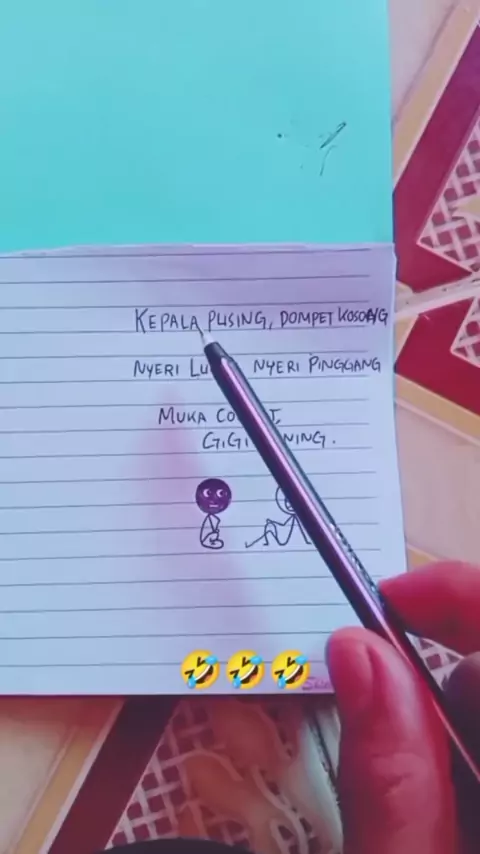 KEPALA PUSING, DOMPET KOSONG
NYERI NYERI PINGGANG
MUKA
GIGI